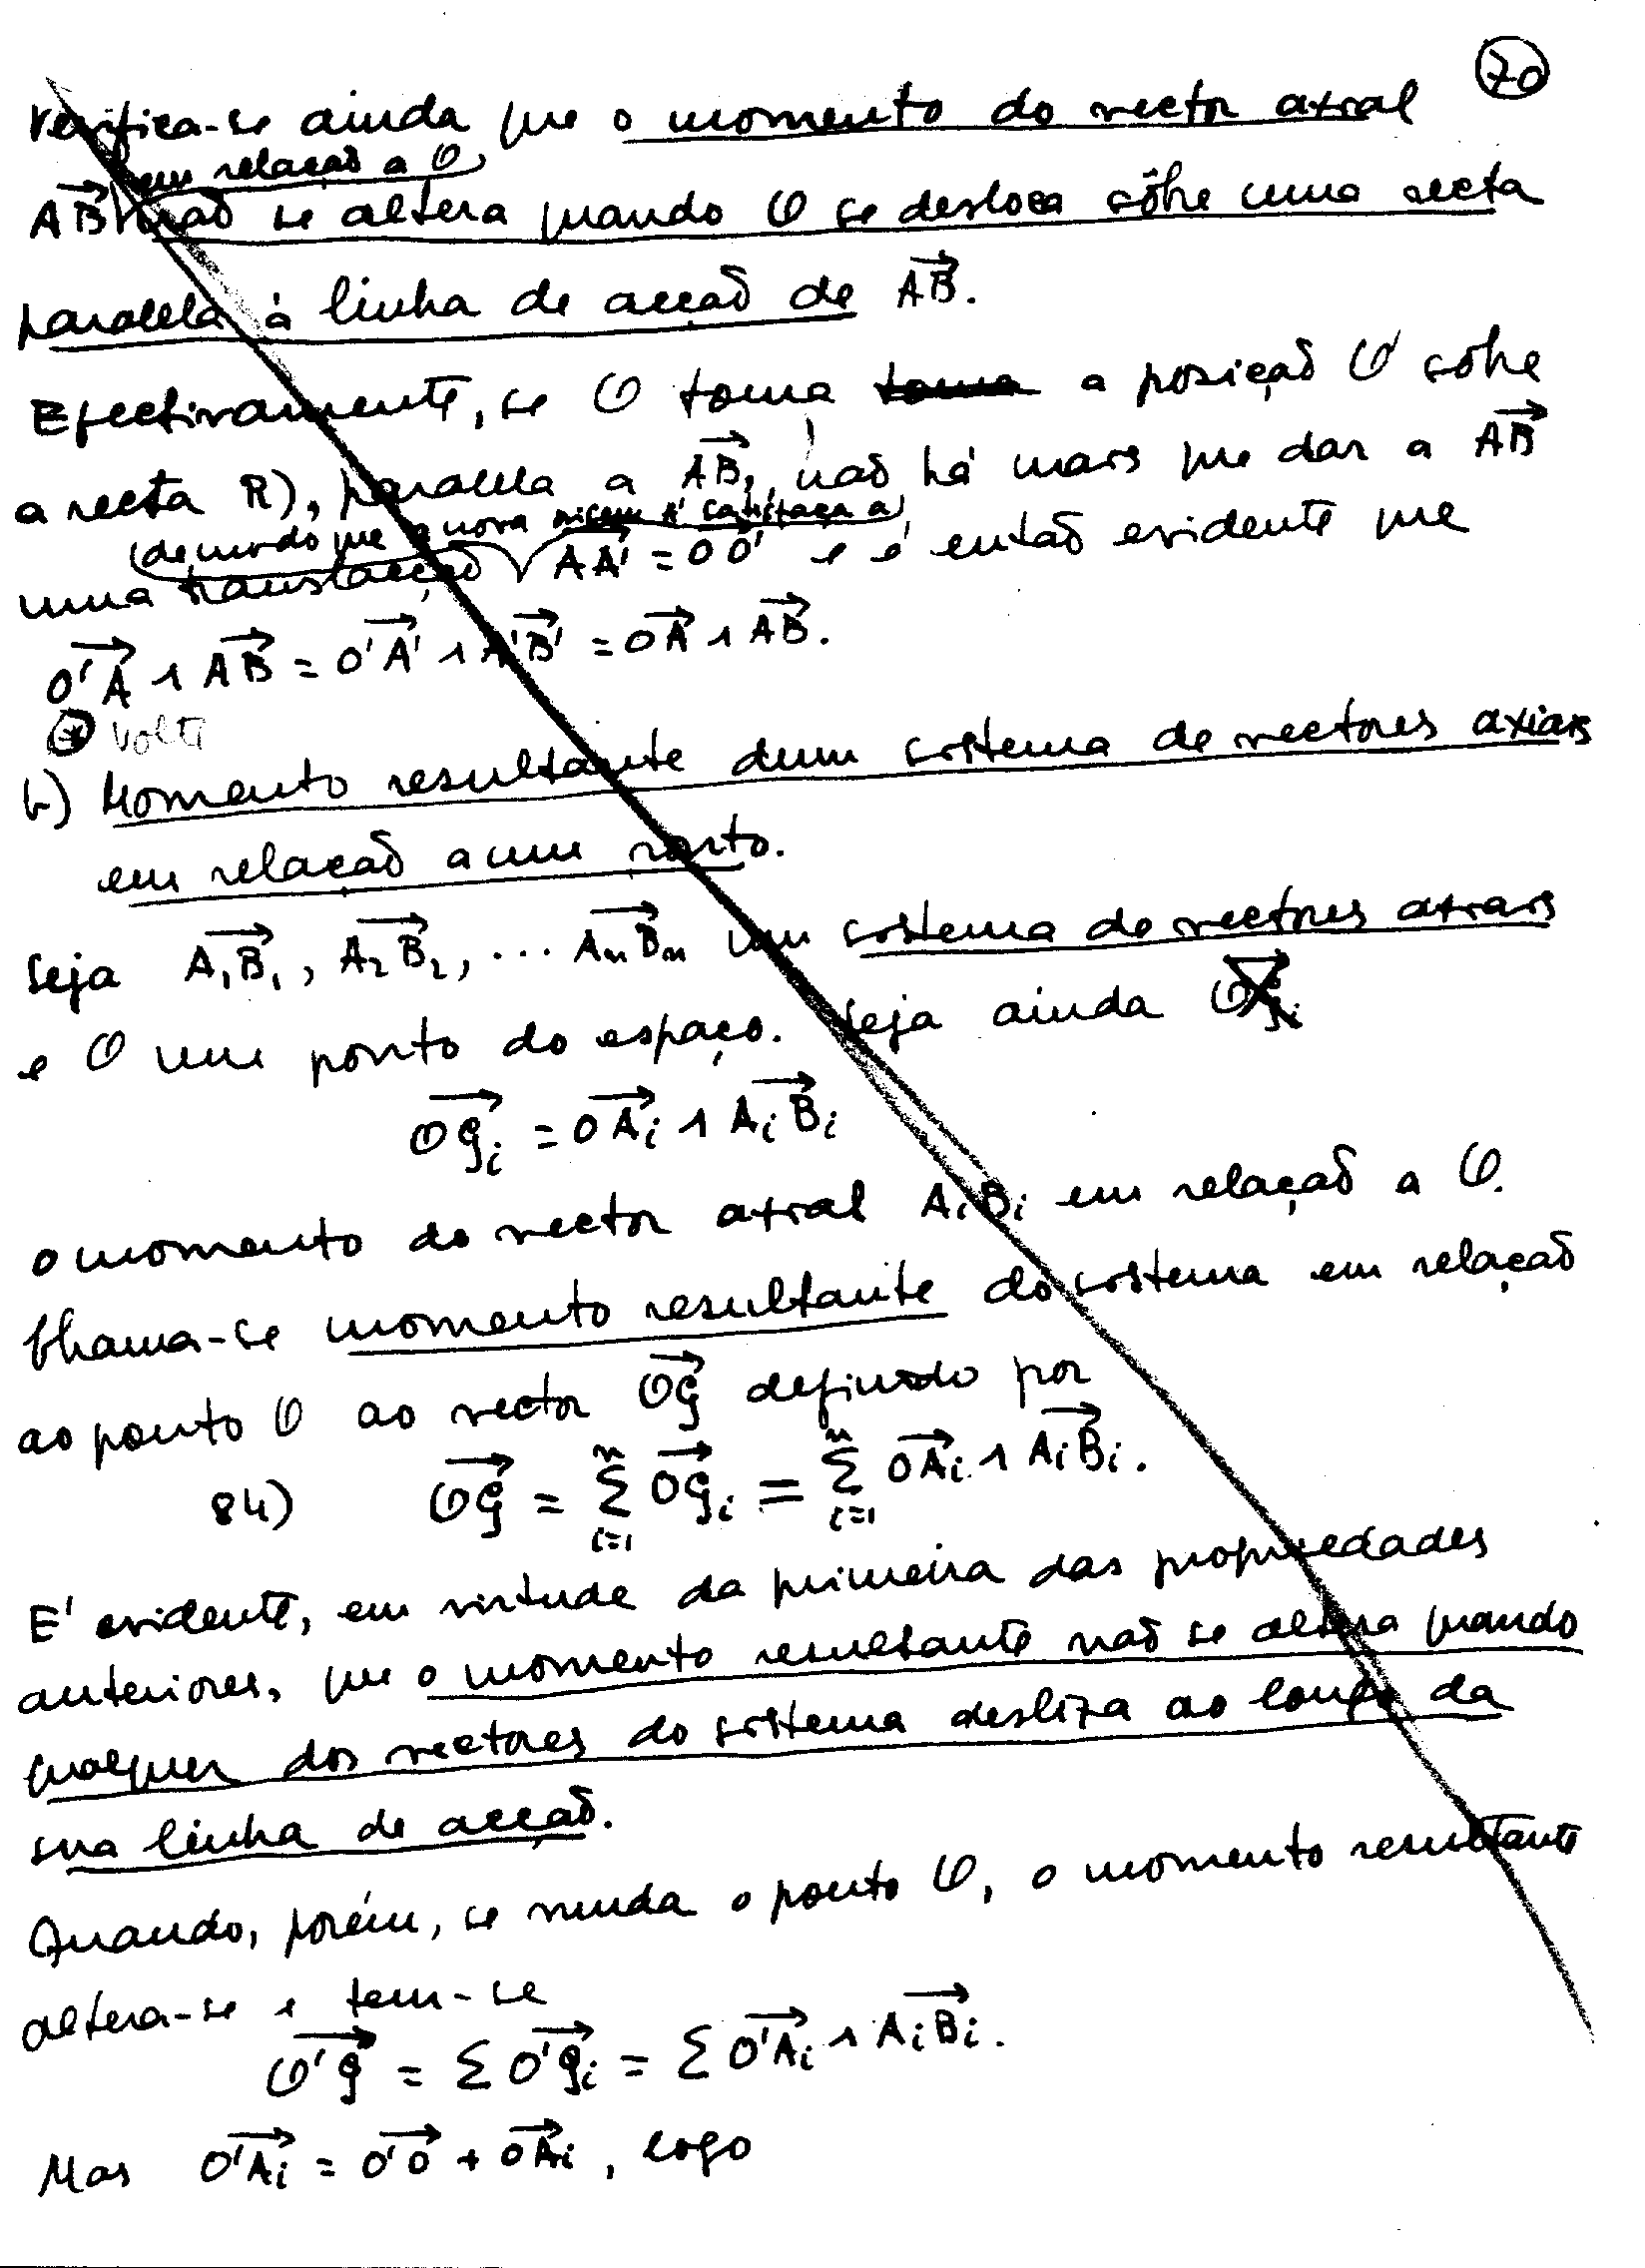 70
Verifica-se ainda que o momento do vector axial
em relação a O
AB não se altera quando O se desloca sôbre uma recta
paralela à linha de acção de AB.
Efectivamente, se O toma toma a posição O' sôbre
a recta R), paralela a AB, não há mais que dar a AB
(de modo que a nova origem A' satisfaça a)
uma translacção, AA' = OO' e é então evidente que
O'A ∧ AB = O'A' ∧ A'B' = OA ∧ AB.
Volte
b) Momento resultante dum sistema de vectores axiais
em relação a um ponto.
Seja A₁B₁, A₂B₂, ... AₙBₙ um sistema de vectores axiais
e O um ponto do espaço. Seja ainda
OGᵢ = OAᵢ ∧ AᵢBᵢ
o momento do vector axial AᵢBᵢ em relação a O.
Chama-se momento resultante do sistema em relação
ao ponto O ao vector OG definido por
84) OG = Σⁿᵢ₌₁ OGᵢ = Σⁿᵢ₌₁ OAᵢ ∧ AᵢBᵢ.
E' evidente, em virtude da primeira das propriedades
anteriores, que o momento resultante não se altera quando
qualquer dos vectores do sistema desliza ao longo da
sua linha de acção.
Quando, porém, se muda o ponto O, o momento resultante
altera-se e tem-se
O'G = Σ O'Gᵢ = Σ O'Aᵢ ∧ AᵢBᵢ.
Mas O'Aᵢ = O'O + OAᵢ, logo